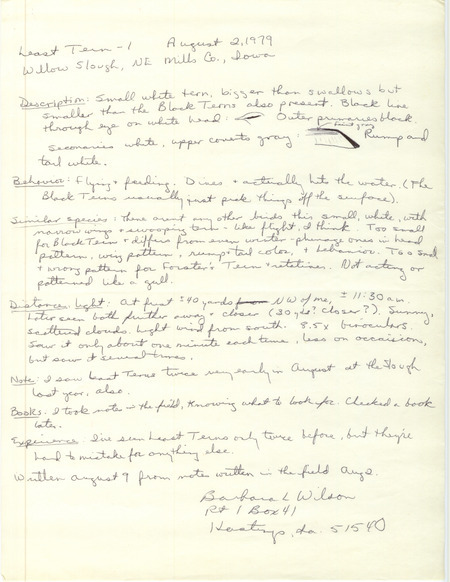 Least Tern - 1 August 2, 1979
Willow Slough, NE Mills Co., Iowa
Description: Small white tern, bigger than swallows but
smaller than the Black Terns also present. Black line
through eye on white head: Outer primaries black.
secondaries white, upper coverts gray: Rump and
tail white.
Behavior: Flying & feeding. Dives & actually hits the water. (The
Black Terns usually just peck things off the surface).
Similar species: There aren't any other birds this small, white, with
narrow wings & swooping tern-like flight, I think. Too small
for Black Tern & differs from even winter-plumage ones in head
pattern, wing pattern, rump & tail color, & behavior. Too small
& wrong pattern for Forster's Tern & relatives. Not acting or
patterned like a gull.
Distance, Light: At first ±40 yards NW of me, ± 11:30 am.
Later seen both further away & closer (30 yds? closer?). Sunny,
scattered clouds. Light wind from south. 8.5x binoculars.
Saw it only about one minute each time, less on occasions,
but saw it several times.
Note: I saw Least Terns twice very early in August at the slough
last year, also.
Books: I took notes in the field, knowing what to look for. Checked a book
later.
Experience: I've seen Least Terns only twice before, but they're
hard to mistake for anything else.
Written August 9 from notes written in the field Aug 2.
Barbara L Wilson
Rt 1 Box 41
Hastings, Ia. 51540